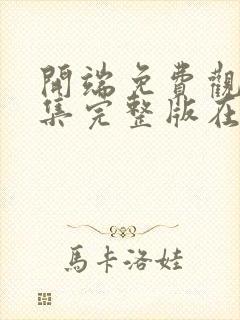 開端免費觀
集完整版在
馬卡洛娃